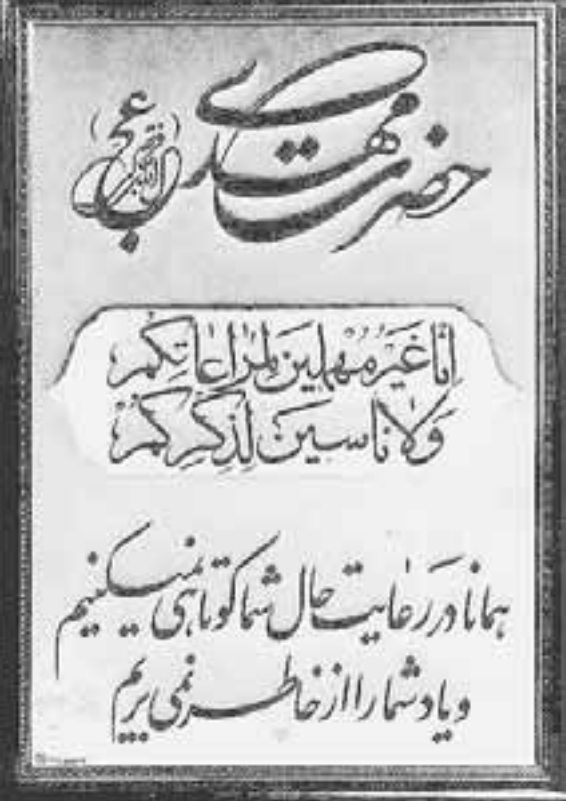 حضرت مهدی (عج)
اِنّا غَیرُ مُهمِلینَ لِمُراعاتِکُم
وَلا ناسینَ لِذِکرِکُم
همانا در رعایت حال شما کوتاهی نمیکنیم
و یاد شما را از خاطر نمی‌بریم